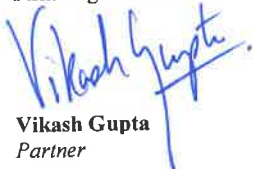 Vikash Gupta
Vikash Gupta
Partner